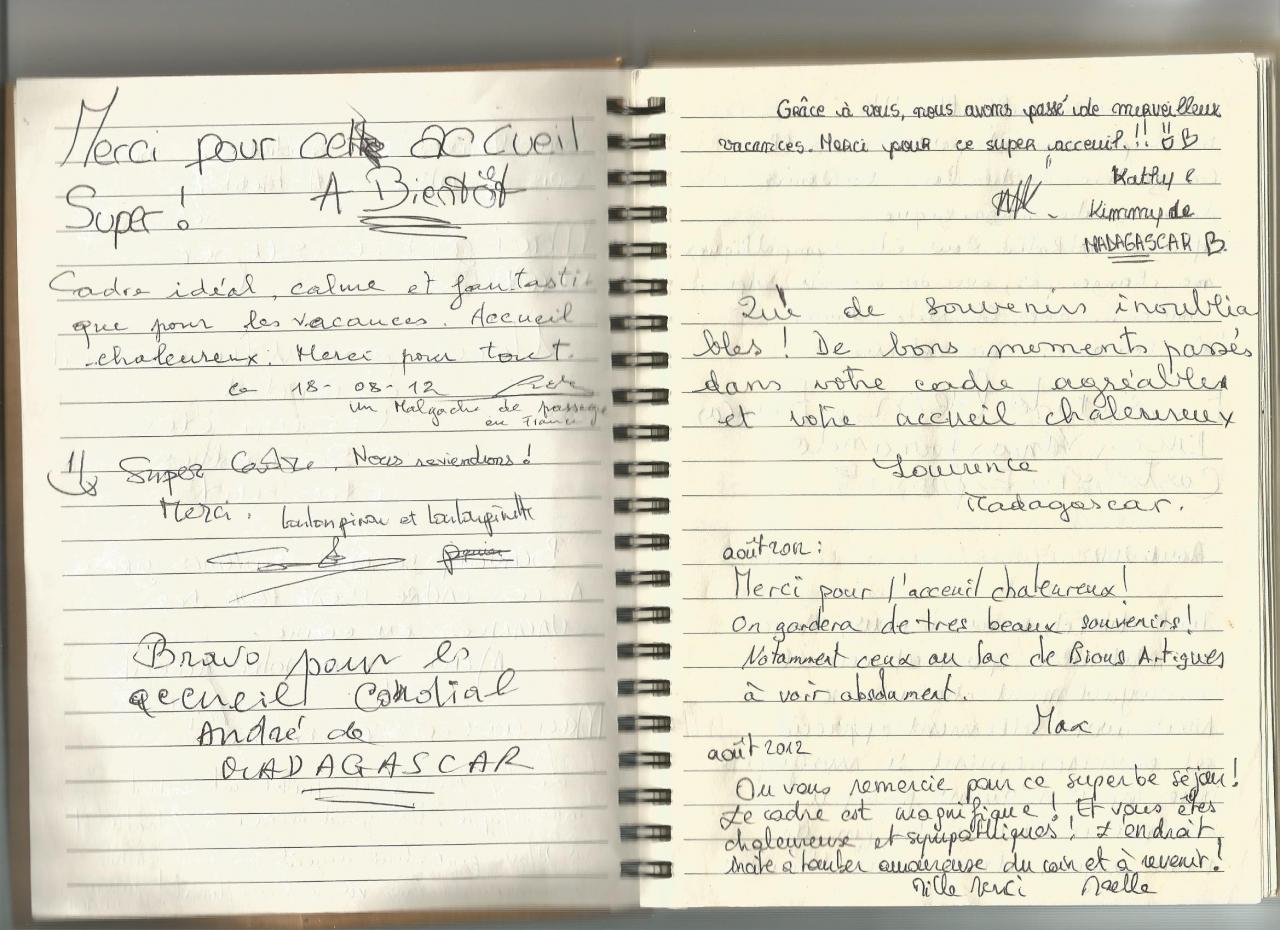 Merci pour cette accueil
Super ! A Bientôt
Cadre idéal, calme et fantasti-
que pour les vacances. Accueil
chaleureux. Merci pour tout.
Le 18-08-12
un Malgache de passage
en France
Super Cadre. Nous reviendrons !
Merci. Louloupinou et Louloupinette
Bravo pour le
accueil Cordial
André de
MADAGASCAR
Grâce à vous, nous avons passé de merveilleux
vacances. Merci pour ce super acceuil.!!
Kathy &
Kimmy de
MADAGASCAR B.
Que de souvenirs inoublia
bles ! De bons moments passés
dans votre cadre agréable
et votre accueil chaleureux
Laurence
Madagascar.
août 2012 :
Merci pour l'acceuil chaleureux !
On gardera de tres beaux souvenirs !
Notamment ceux au lac de Bious Artigues
à voir absolument.
Max
août 2012
On vous remercie pour ce superbe séjour !
Le cadre est magnifique ! Et vous êtes
chaleureuse et sympathiques ! L'endroit
incite à tomber amoureuse du coin et à revenir !
Mille Merci Maelle